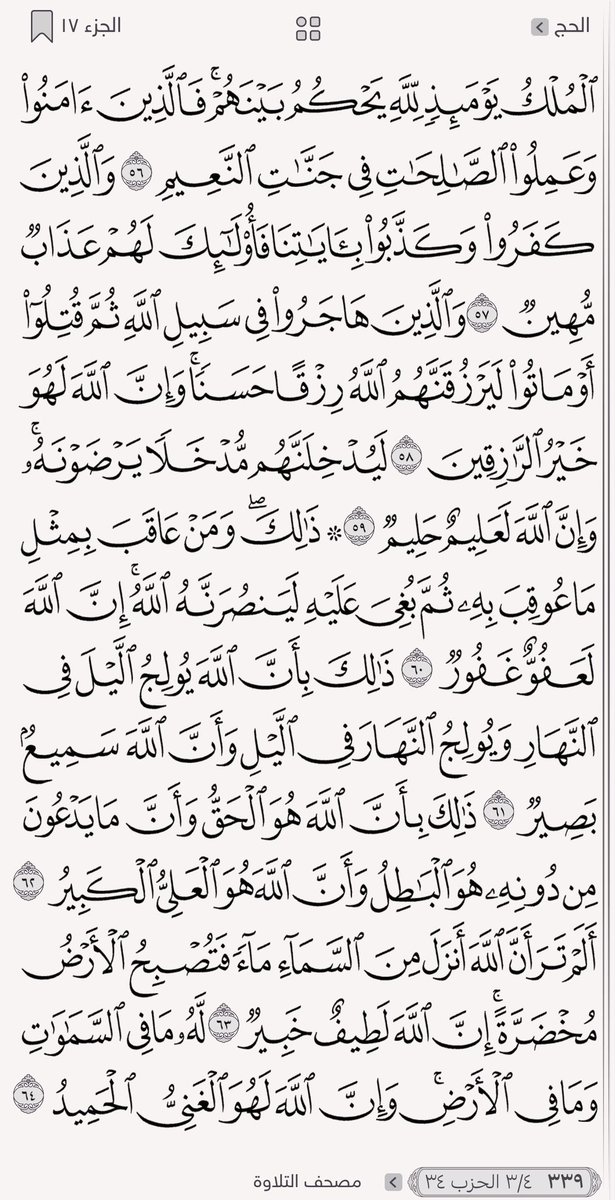 الحج
الجزء ١٧
ٱلْمُلْكُ يَوْمَئِذٍ لِّلَّهِ يَحْكُمُ بَيْنَهُمْۚ فَٱلَّذِينَ ءَامَنُوا۟
وَعَمِلُوا۟ ٱلصَّٰلِحَٰتِ فِى جَنَّٰتِ ٱلنَّعِيمِ ٥٦ وَٱلَّذِينَ
كَفَرُوا۟ وَكَذَّبُوا۟ بِـَٔايَٰتِنَا فَأُو۟لَٰٓئِكَ لَهُمْ عَذَابٌ
مُّهِينٌ ٥٧ وَٱلَّذِينَ هَاجَرُوا۟ فِى سَبِيلِ ٱللَّهِ ثُمَّ قُتِلُوٓا۟
أَوْ مَاتُوا۟ لَيَرْزُقَنَّهُمُ ٱللَّهُ رِزْقًا حَسَنًاۚ وَإِنَّ ٱللَّهَ لَهُوَ
خَيْرُ ٱلرَّٰزِقِينَ ٥٨ لَيُدْخِلَنَّهُم مُّدْخَلًا يَرْضَوْنَهُۥۚ
وَإِنَّ ٱللَّهَ لَعَلِيمٌ حَلِيمٌ ٥٩ ۞ ذَٰلِكَۖ وَمَنْ عَاقَبَ بِمِثْلِ
مَا عُوقِبَ بِهِۦ ثُمَّ بُغِىَ عَلَيْهِ لَيَنصُرَنَّهُ ٱللَّهُۚ إِنَّ ٱللَّهَ
لَعَفُوٌّ غَفُورٌ ٦٠ ذَٰلِكَ بِأَنَّ ٱللَّهَ يُولِجُ ٱلَّيْلَ فِى
ٱلنَّهَارِ وَيُولِجُ ٱلنَّهَارَ فِى ٱلَّيْلِ وَأَنَّ ٱللَّهَ سَمِيعٌۢ
بَصِيرٌ ٦١ ذَٰلِكَ بِأَنَّ ٱللَّهَ هُوَ ٱلْحَقُّ وَأَنَّ مَا يَدْعُونَ
مِن دُونِهِۦ هُوَ ٱلْبَٰطِلُ وَأَنَّ ٱللَّهَ هُوَ ٱلْعَلِىُّ ٱلْكَبِيرُ ٦٢
أَلَمْ تَرَ أَنَّ ٱللَّهَ أَنزَلَ مِنَ ٱلسَّمَآءِ مَآءً فَتُصْبِحُ ٱلْأَرْضُ
مُخْضَرَّةًۗ إِنَّ ٱللَّهَ لَطِيفٌ خَبِيرٌ ٦٣ لَّهُۥ مَا فِى ٱلسَّمَٰوَٰتِ
وَمَا فِى ٱلْأَرْضِۗ وَإِنَّ ٱللَّهَ لَهُوَ ٱلْغَنِىُّ ٱلْحَمِيدُ ٦٤
٣٣٩ ٣/٤ الحزب ٣٤
مصحف التلاوة